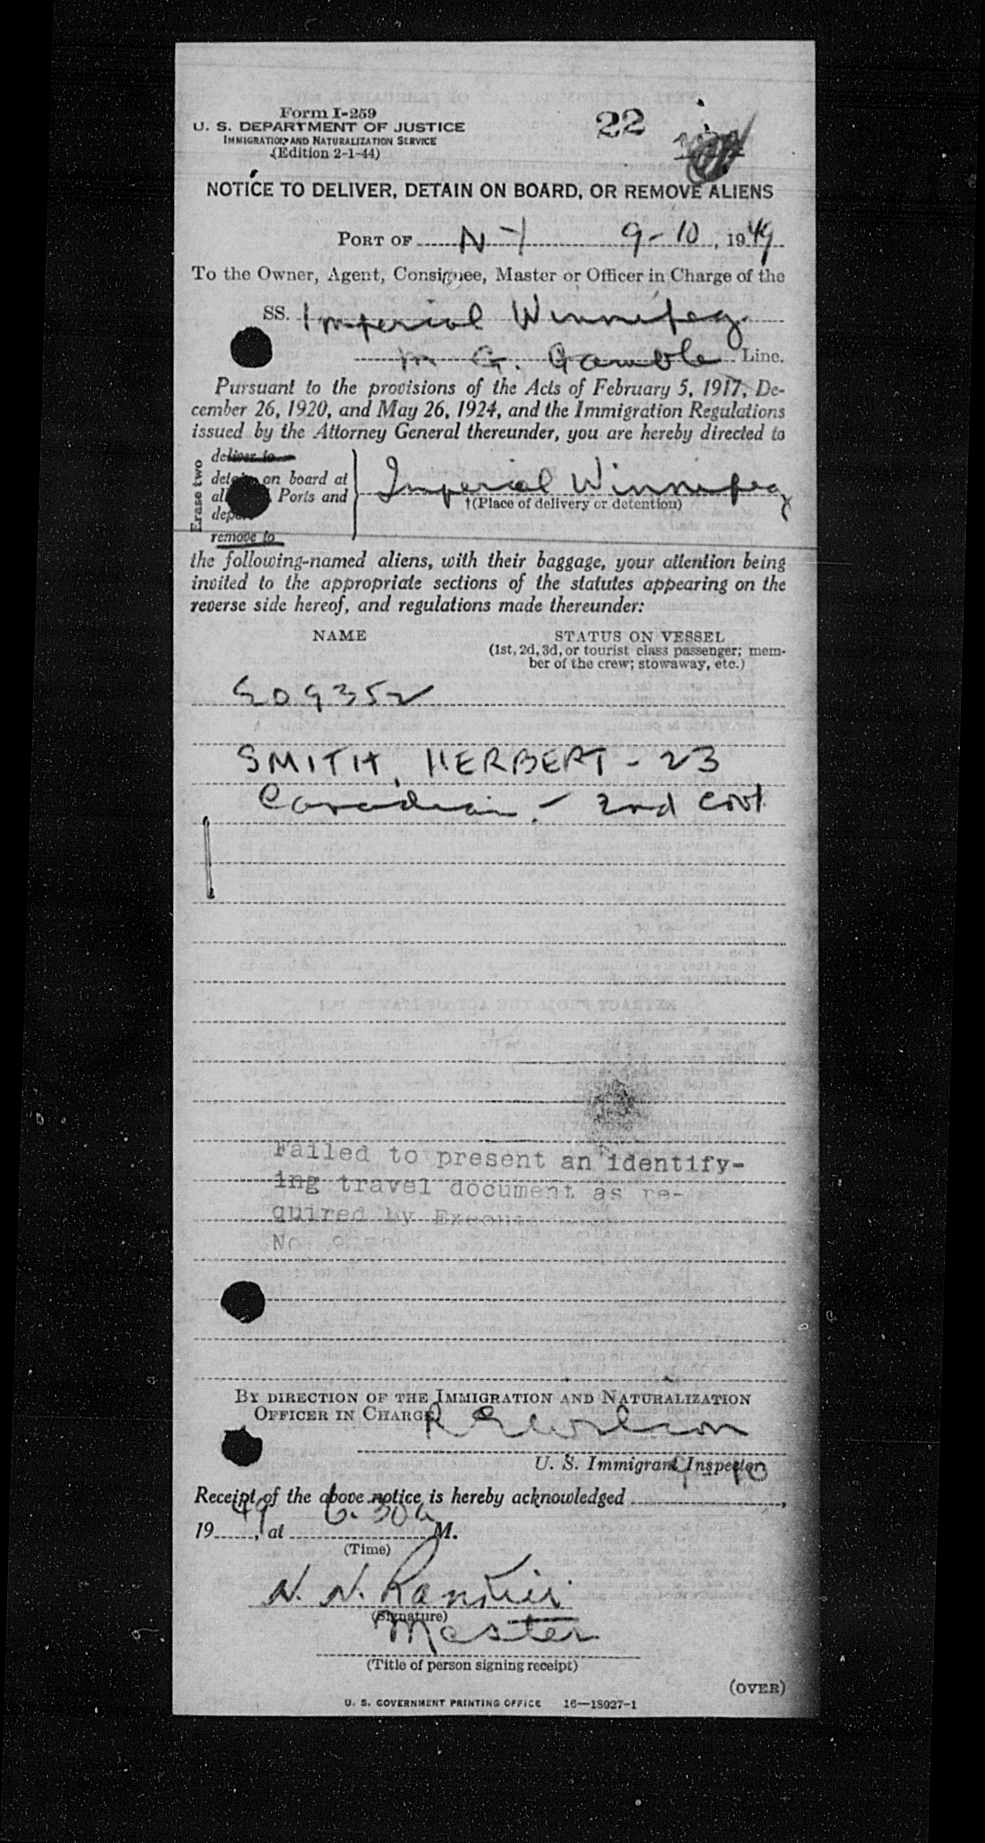 Form I-259
U. S. DEPARTMENT OF JUSTICE
IMMIGRATION AND NATURALIZATION SERVICE
(Edition 2-1-44)
22
NOTICE TO DELIVER, DETAIN ON BOARD, OR REMOVE ALIENS
PORT OF N-Y 9-10, 1949
To the Owner, Agent, Consignee, Master or Officer in Charge of the
SS. Imperial Winnipeg
M G. Gamble Line.
Pursuant to the provisions of the Acts of February 5, 1917, De-
cember 26, 1920, and May 26, 1924, and the Immigration Regulations
issued by the Attorney General thereunder, you are hereby directed to
Erase two
deliver to
detain on board at
all Ports and
deport
remove to
Imperial Winnipeg
†(Place of delivery or detention)
the following-named aliens, with their baggage, your attention being
invited to the appropriate sections of the statutes appearing on the
reverse side hereof, and regulations made thereunder:
NAME STATUS ON VESSEL
(1st, 2d, 3d, or tourist class passenger; mem-
ber of the crew; stowaway, etc.)
SMITH, HERBERT - 23
Canadian - 2nd Cook
Failed to present an identify-
ing travel document as re-
quired by
No.
BY DIRECTION OF THE IMMIGRATION AND NATURALIZATION
OFFICER IN CHARGE
R Wilson
U. S. Immigrant Inspector.
Receipt of the above notice is hereby acknowledged 9-10,
1949, at 6.30 a M.
(Time)
N. N.
(Signature)
Master
(Title of person signing receipt)
(OVER)
U. S. GOVERNMENT PRINTING OFFICE 16—18927-1